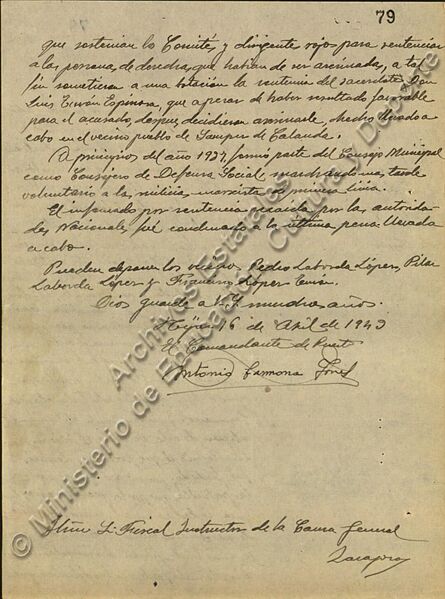 79
que sostenian los Comités y dirigente rojos para sentenciar
a las personas de derechas que habian de ser asesinadas, a tal
fin sometieron a una votación la sentencia del sacerdote Don
Luis Turón Espinosa, que apesar de haber resultado favorable
para el acusado, despues decidieron asesinarle, hecho llevado a
cabo en el vecino pueblo de Samper de Calanda.
A principios del año 1937, formó parte del Consejo Municipal
como Consejero de Defensa Social, marchando mas tarde
voluntario a la milicia marxista de primera linea.
El informado por sentencia recaida por las autorida-
des Nacionales fué condenado a la última pena llevada
a cabo.
Pueden deponer los vecinos Pedro Laborda López, Pilar
Laborda López y Francisco López
Dios guarde a V.I. muchos años.
Hijar 16 de Abril de 1943
El Comandante de Puesto
Antonio Carmona
Iltmo Sr. Fiscal Instructor de la Causa General
Zaragoza
© Ministerio de Educación, Cultura y Deporte
Archivos Estatales